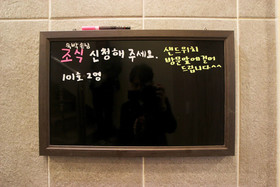 숙박손님
조식 신청해 주세요.
101호 2명
샌드위치
방문앞에 걸어
드립니다^^